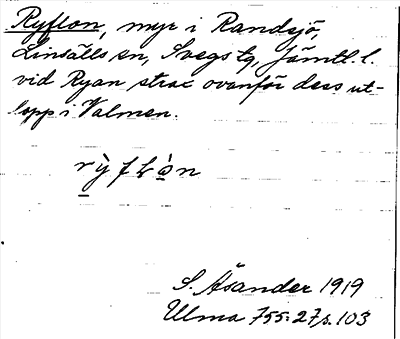 Ryflon, myr i Randsjö,
Linsälls sn, Svegs tg, Jämtl. l.
vid Ryan strax ovanför dess ut-
lopp i Valmen.
rỳflòn
S. Åsander 1919
Ulma 755:27 s. 103